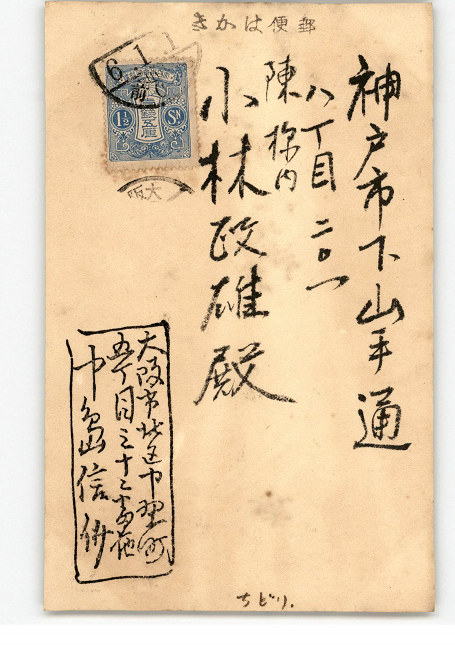 郵便はかき
神戸市下山手通
八丁目二〇一
陳様内
小林政雄殿
6.1.1
前
1½ Sn
大阪
大阪市北区中野町
五丁目三十三番地
中島信
ちどり.